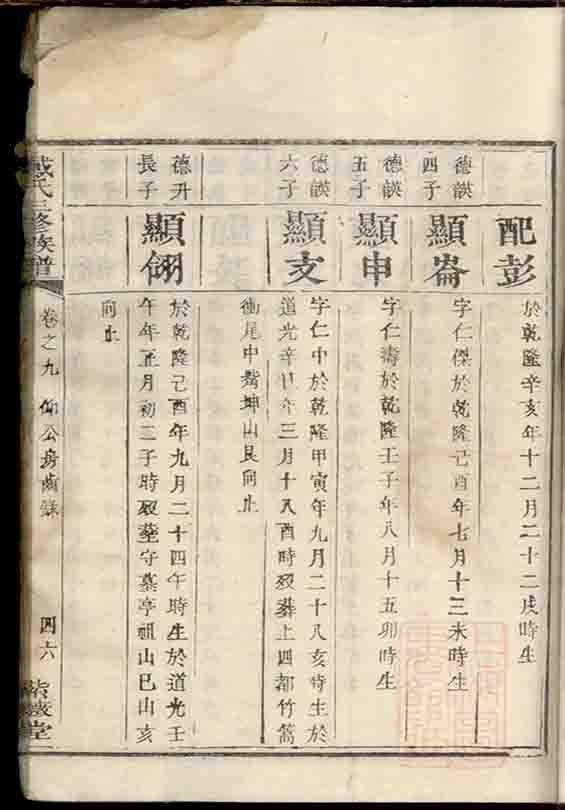 配彭
於乾隆辛亥年十二月二十二戌時生
德諆
四子
顯崙
字仁傑於乾隆己酉年七月十三未時生
德諆
五子
顯申
字仁壽於乾隆壬子年八月十五卯時生
德諆
六子
顯支
字仁中於乾隆甲寅年九月二十八亥時生於
道光辛丑年三月十八酉時歿葬上四都竹篙
衝尾中嘴坤山艮向止
德升
長子
顯翎
於乾隆己酉年九月二十四午時生於道光壬
午年正月初三子時歿葬守墓亭祖山巳山亥
向止
戴氏三修族譜
卷之九
仰公房齒錄
四六
堂